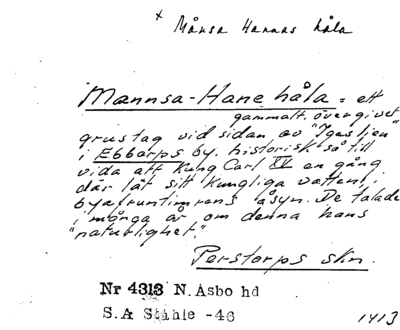 x Månsa Hannas håla
Mannsa-Hane håla = ett
gammalt, övergivet
grustag vid sidan av "Igeslien"
i Ebbarps by, historisk så till
vida att Kung Carl XV en gång
där lät sitt kungliga vatten, i
byafruntimrens åsyn. De talade
i många år om denna hans
"naturlighet."
Perstorps skn.
Nr 4313 N. Åsbo hd
S.A Ståhle -46
1413